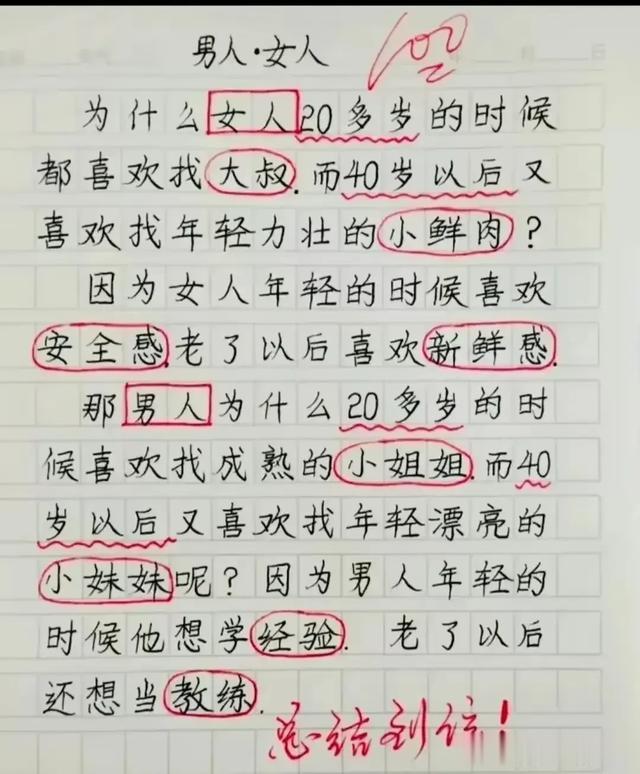 男人·女人
100
为什么女人20多岁的时候
都喜欢找大叔.而40岁以后又
喜欢找年轻力壮的小鲜肉?
因为女人年轻的时候喜欢
安全感.老了以后喜欢新鲜感.
那男人为什么20多岁的时
候喜欢找成熟的小姐姐.而40
岁以后又喜欢找年轻漂亮的
小妹妹呢?因为男人年轻的
时候他想学经验.老了以后
还想当教练.
总结到位!